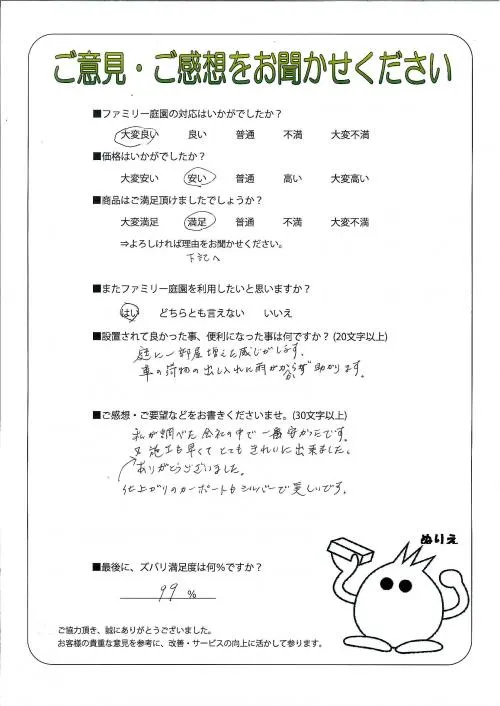 ご意見・ご感想をお聞かせください
■ファミリー庭園の対応はいかがでしたか？
大変良い 良い 普通 不満 大変不満
■価格はいかがでしたか？
大変安い 安い 普通 高い 大変高い
■商品はご満足頂けましたでしょうか？
大変満足 満足 普通 不満 大変不満
⇒よろしければ理由をお聞かせください。
下記へ
■またファミリー庭園を利用したいと思いますか？
はい どちらとも言えない いいえ
■設置されて良かった事、便利になった事は何ですか？(20文字以上)
庭に一部屋増えた感じがします。
車の荷物の出し入れに雨がかからず助かります。
■ご感想・ご要望などをお書きくださいませ。(30文字以上)
私が調べた会社の中で一番安かったです。
又施工も早くてとてもきれいに出来ました。
ありがとうございました。
仕上がりのカーポートもシルバーで美しいです。
ぬりえ
■最後に、ズバリ満足度は何％ですか？
99 %
ご協力頂き、誠にありがとうございました。
お客様の貴重な意見を参考に、改善・サービスの向上に活かして参ります。